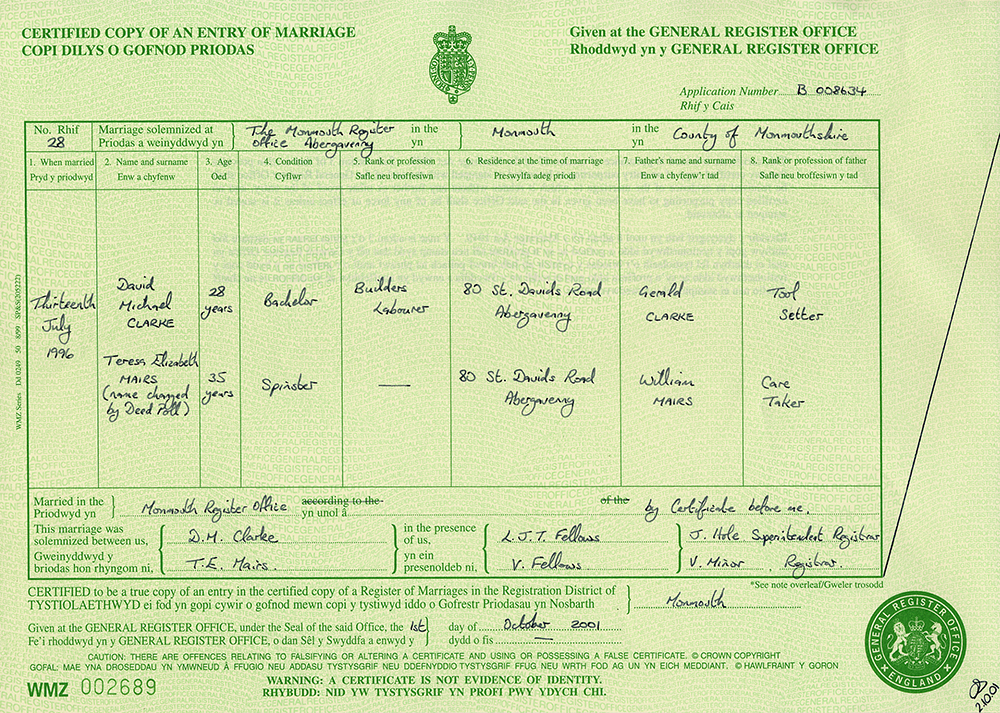 CERTIFIED COPY OF AN ENTRY OF MARRIAGE
COPI DILYS O GOFNOD PRIODAS
Given at the GENERAL REGISTER OFFICE
Rhoddwyd yn y GENERAL REGISTER OFFICE
Application Number B 008634
Rhif y Cais
No. Rhif
28
Marriage solemnized at
Priodas a weinyddwyd yn
The Monmouth Register
Office Abergavenny
in the
yn
Monmouth
in the
yn
County of Monmouthshire
1. When married
Pryd y priodwyd
2. Name and surname
Enw a chyfenw
3. Age
Oed
4. Condition
Cyflwr
5. Rank or profession
Safle neu broffesiwn
6. Residence at the time of marriage
Preswylfa adeg priodi
7. Father's name and surname
Enw a chyfenw'r tad
8. Rank or profession of father
Safle neu broffesiwn y tad
Thirteenth
July
1996
David
Michael
CLARKE
28
years
Bachelor
Builders
Labourer
80 St. Davids Road
Abergavenny
Gerald
CLARKE
Tool
Setter
Teresa Elizabeth
MAIRS
(name changed
by Deed Poll)
35
years
Spinster
—
80 St. Davids Road
Abergavenny
William
MAIRS
Care
Taker
Married in the
Priodwyd yn
Monmouth Register Office
according to the
yn unol â
of the
by Certificate before me,
This marriage was
solemnized between us,
Gweinyddwyd y
briodas hon rhyngom ni,
D.M. Clarke
T.E. Mairs.
in the presence
of us,
yn ein
presenoldeb ni,
L.J.T. Fellows
V. Fellows
J. Hole Superintendent Registrar
V. Minor Registrar.
CERTIFIED to be a true copy of an entry in the certified copy of a Register of Marriages in the Registration District of
TYSTIOLAETHWYD ei fod yn gopi cywir o gofnod mewn copi y tystiwyd iddo o Gofrestr Priodasau yn Nosbarth
Monmouth
*See note overleaf/Gweler trosodd
Given at the GENERAL REGISTER OFFICE, under the Seal of the said Office, the 1st day of October 2001
Fe'i rhoddwyd yn y GENERAL REGISTER OFFICE, o dan Sêl y Swyddfa a enwyd y dydd o fis —
CAUTION: THERE ARE OFFENCES RELATING TO FALSIFYING OR ALTERING A CERTIFICATE AND USING OR POSSESSING A FALSE CERTIFICATE. © CROWN COPYRIGHT
GOFAL: MAE YNA DROSEDDAU YN YMWNEUD Â FFUGIO NEU ADDASU TYSTYSGRIF NEU DDEFNYDDIO TYSTYSGRIF FFUG NEU WRTH FOD AG UN YN EICH MEDDIANT. © HAWLFRAINT Y GORON
WARNING: A CERTIFICATE IS NOT EVIDENCE OF IDENTITY.
RHYBUDD: NID YW TYSTYSGRIF YN PROFI PWY YDYCH CHI.
WMZ 002689
GENERAL REGISTER OFFICE
ENGLAND
2.10.01
WMZ Series Dd 0249 50 8/99 SP&S(205222)